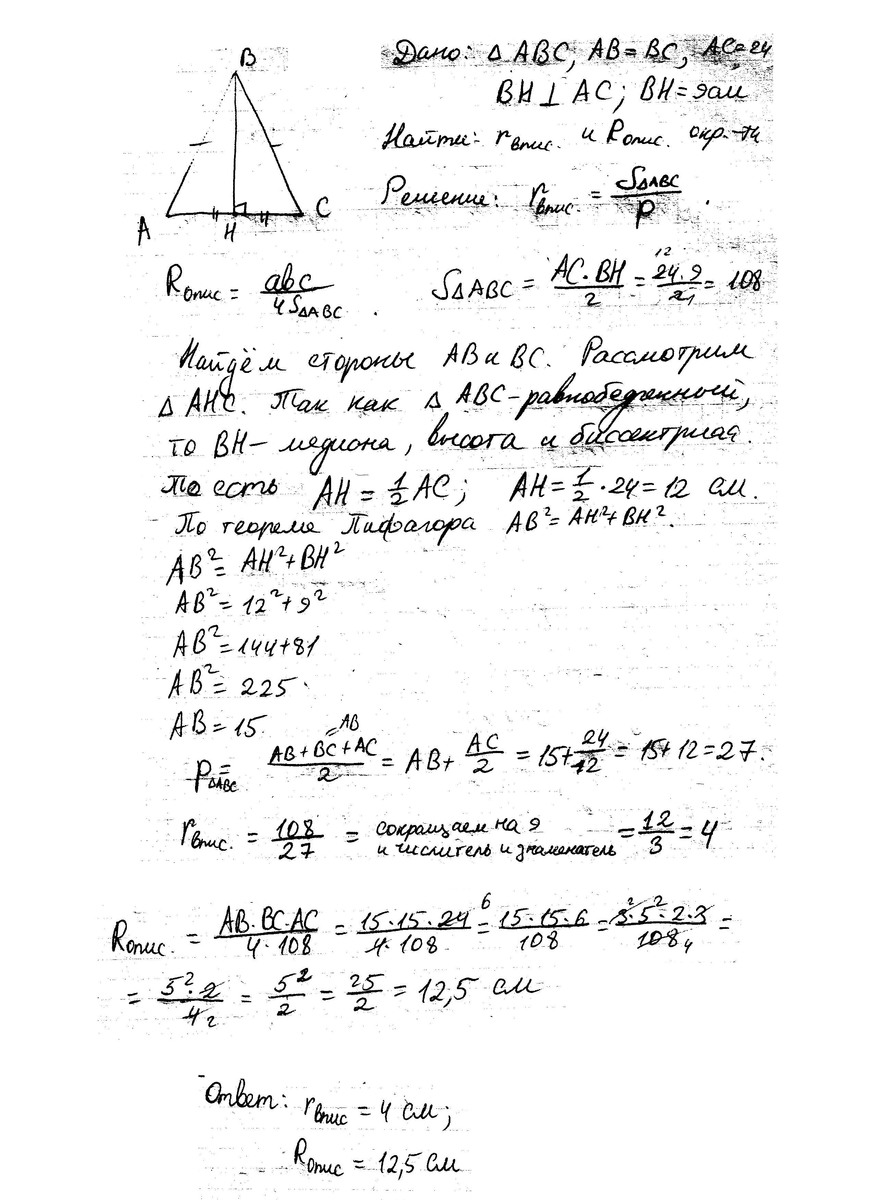 B
A
H
C
Дано: Δ ABC, AB = BC, AC=24
BH ⊥ AC; BH = 9см
Найти: rвпис. и Rопис. окр-ти
Решение: rвпис. = SΔABC/p.
Rопис = abc/4SΔABC. SΔABC = AC·BH/2 = 24·9/2 = 108
12
1
Найдём стороны AB и BC. Рассмотрим
Δ AHC. Так как Δ ABC - равнобедренный,
то BH - медиона, высота и биссектриса.
То есть AH = 1/2 AC; AH = 1/2 · 24 = 12 см.
По теореме Пифагора AB² = AH² + BH².
AB² = AH² + BH²
AB² = 12² + 9²
AB² = 144 + 81
AB² = 225
AB = 15
=AB
pΔABC = AB + BC + AC/2 = AB + AC/2 = 15 + 24/2 = 15 + 12 = 27.
rвпис. = 108/27 = сокращаем на 9 и числитель и знаменатель = 12/3 = 4
Rопис. = AB·BC·AC/4·108 = 15·15·24/4·108 = 15·15·6/108 = 3²·5²·2·3/108 =
6
4
= 5²·2/4 = 5²/2 = 25/2 = 12,5 см
2
Ответ: rвпис = 4 см;
Rопис = 12,5 см